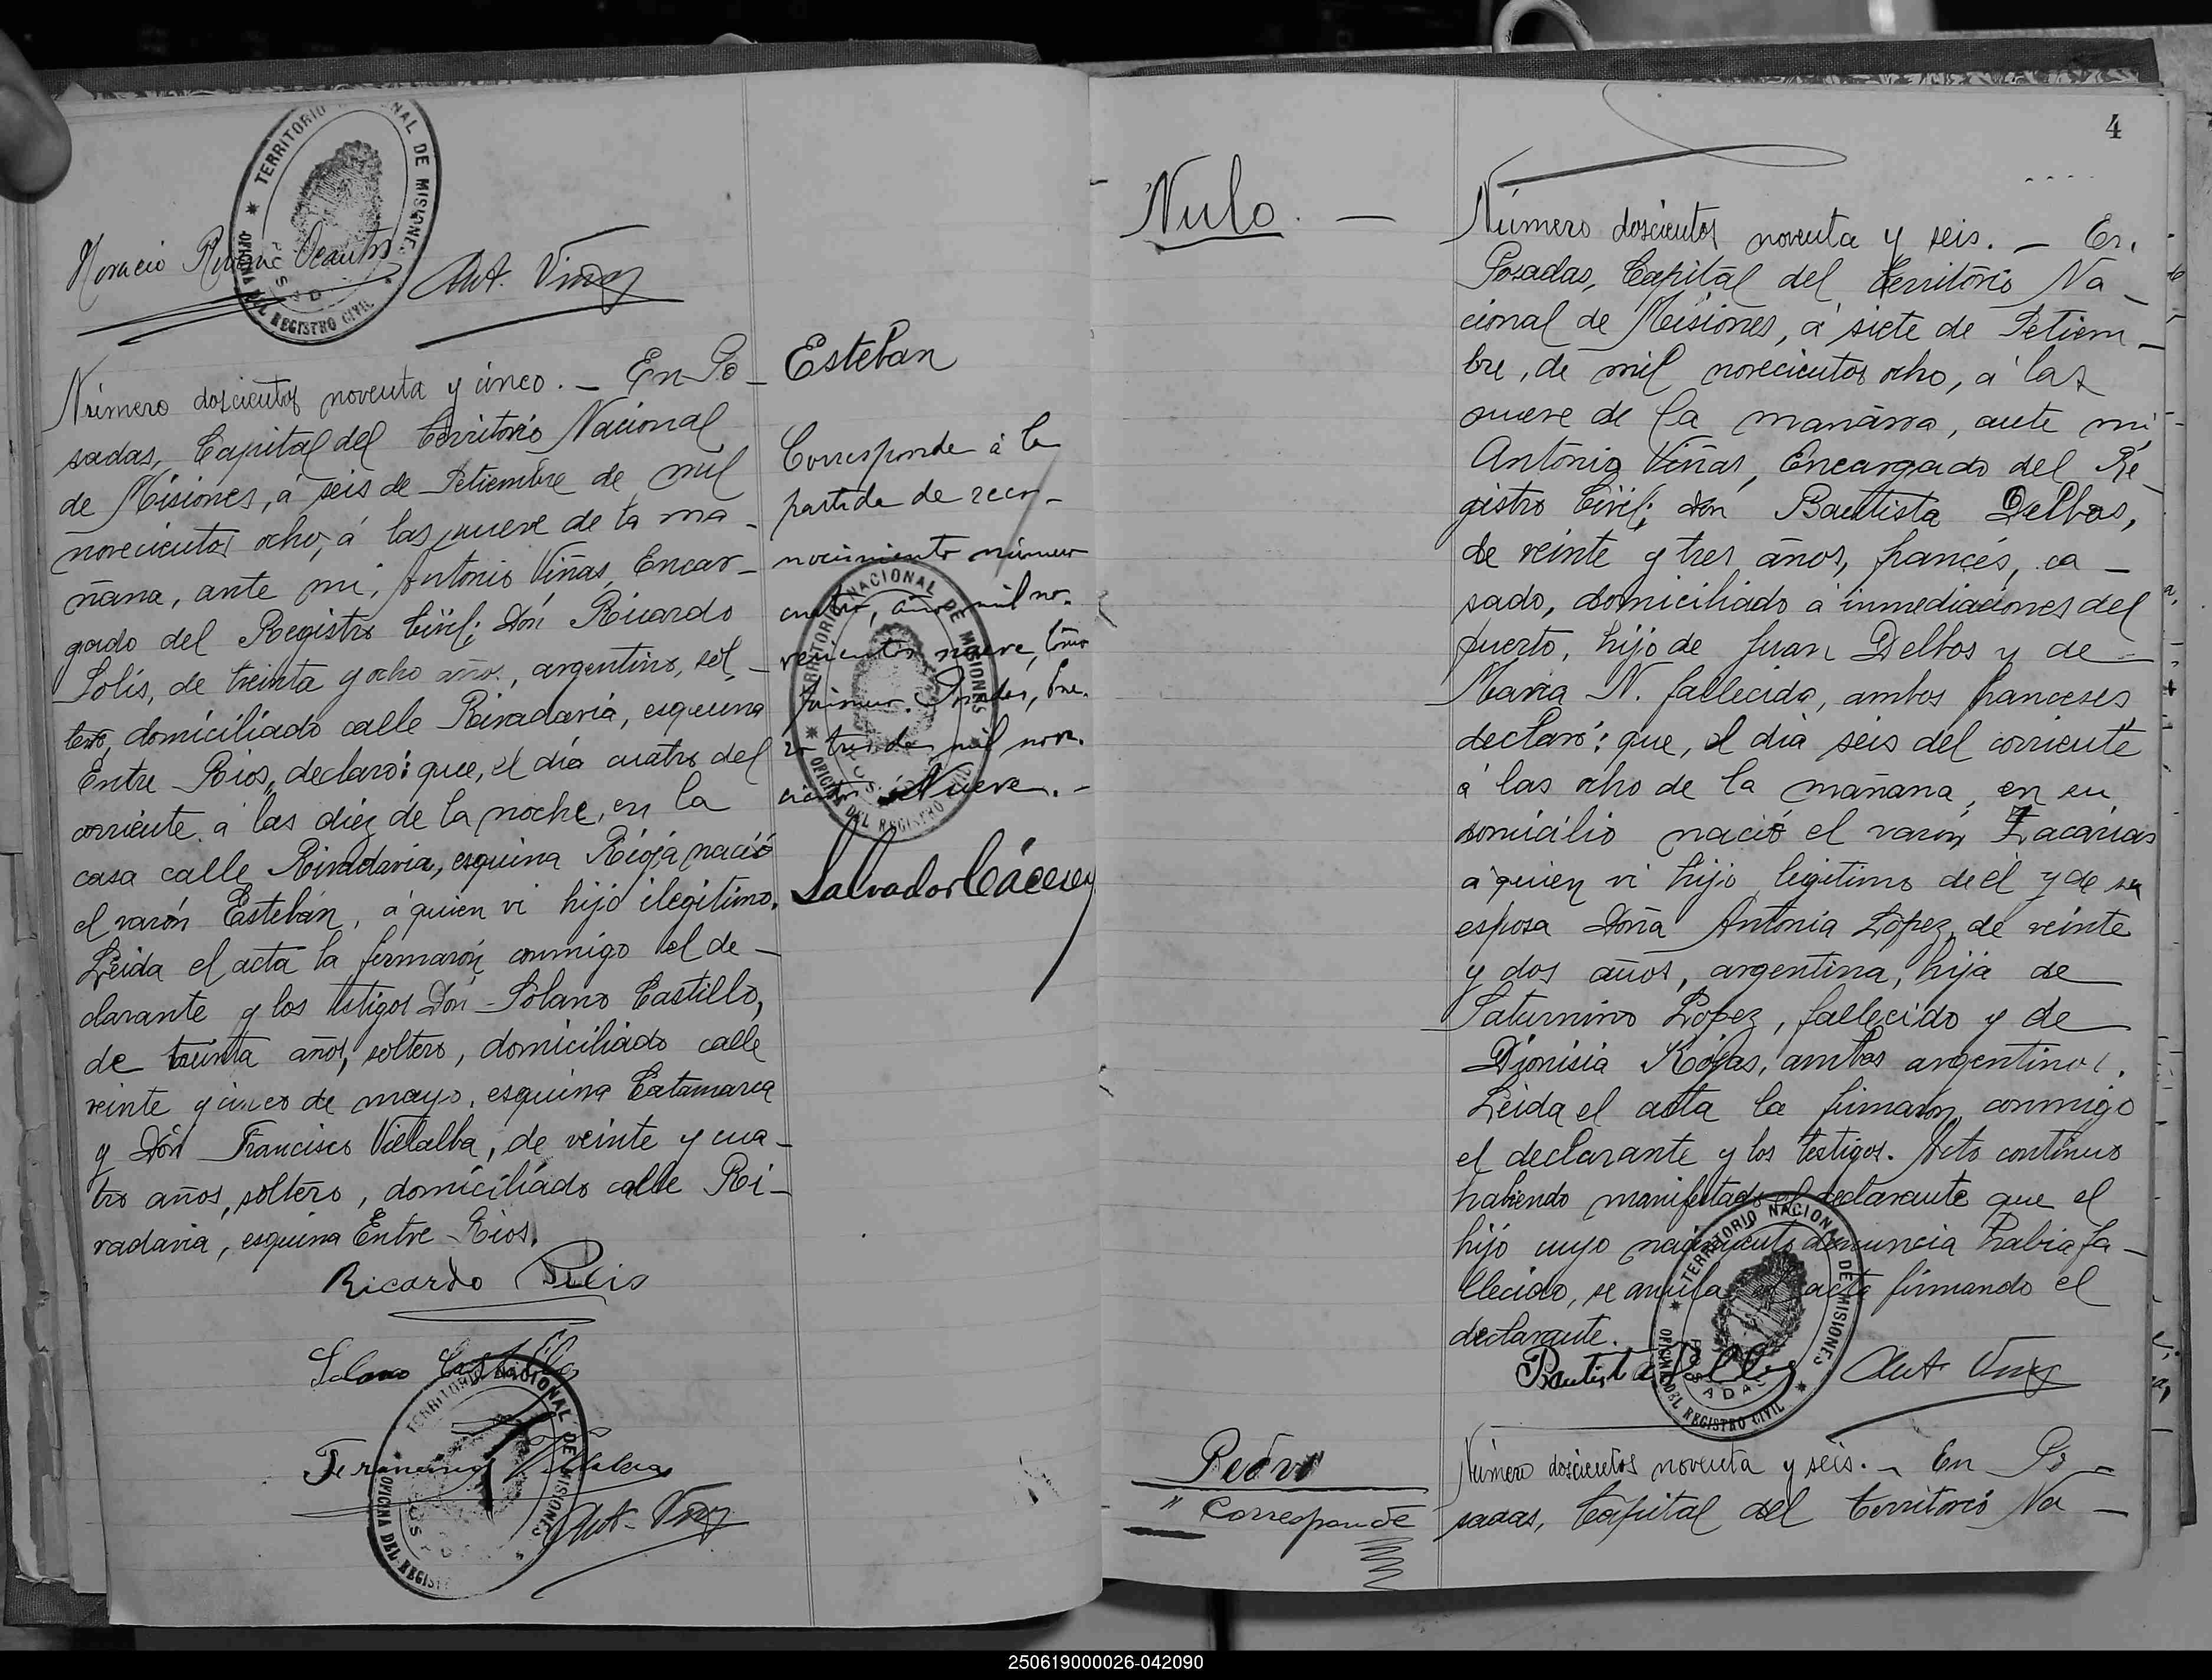 TERRITORIO NACIONAL DE MISIONES
OFICINA DEL REGISTRO CIVIL
Horacio
Ant. Viñas
Número doscientos noventa y cinco. _ En Po_
sadas, Capital del Territorio Nacional
de Misiones, á seis de Setiembre de mil
novecientos ocho, á las nueve de la ma_
ñana, ante mi, Antonio Viñas, Encar_
gado del Registro Civil; Dón Ricardo
Solís, de treinta y ocho años, argentino, sol_
tero, domiciliado calle Rivadavia, esquina
Entre Rios, declaró: que, el día cuatro del
corriente á las diez de la noche, en la
casa calle Rivadavia, esquina Rioja nació
el varón Esteban, á quien vi hijo ilegitimo.
Leida el acta la firmarón conmigo el de_
clarante y los testigos Dón Solano Castillo,
de treinta años, soltero, domiciliado calle
veinte y cinco de mayo, esquina Catamarca
y Dón Francisco Villalba, de veinte y cua_
tro años, soltero, domiciliado calle Ri_
vadavia, esquina Entre Rios.
Ricardo Solis
Solano Castillo
Francisco Villalba
Ant. Viñas
TERRITORIO NACIONAL DE MISIONES
OFICINA DEL REGISTRO
Esteban
Corresponde á la
partida de reco_
nocimiento número
cuatro, año mil no_
vecientos nueve, tomo
primero. Posadas, Ene_
ro tres de mil nove_
cientos Nueve. _
Salvador Cáceres
TERRITORIO NACIONAL DE MISIONES
OFICINA DEL REGISTRO CIVIL
4
Nulo. _
Número doscientos noventa y seis. _ En
Posadas, Capital del Territorio Na_
cional de Misiones, á siete de Setiem_
bre, de mil novecientos ocho, á las
nueve de la mañana, ante mi
Antonio Viñas, Encargado del Re_
gistro Civil; Dón Bautista Delbos,
de veinte y tres años, francés, ca_
sado, domiciliado á inmediaciones del
puerto, hijo de Juan Delbos y de
Maria N. fallecida, ambos franceses
declaró: que, el dia seis del corriente
á las ocho de la mañana, en su
domicilio nació el varón Zacarias
a quien vi hijo legitimo de él y de su
esposa Doña Antonia López, de veinte
y dos años, argentina, hija de
Saturnino López, fallecido y de
Dionisia Rojas, ambos argentinos.
Leida el acta la firmaron conmigo
el declarante y los testigos. Acto continuo
habiendo manifestado el declarante que el
hijo cuyo nacimiento denuncia habia fa_
llecido, se anula el acta firmando el
declarante.
Bautista Delbos
Ant Viñas
TERRITORIO NACIONAL DE MISIONES
POSADAS
OFICINA DEL REGISTRO CIVIL
Pedro
" Corresponde
Número doscientos noventa y seis. _ En Po_
sadas, Capital del Territorio Na_
250619000026-042090